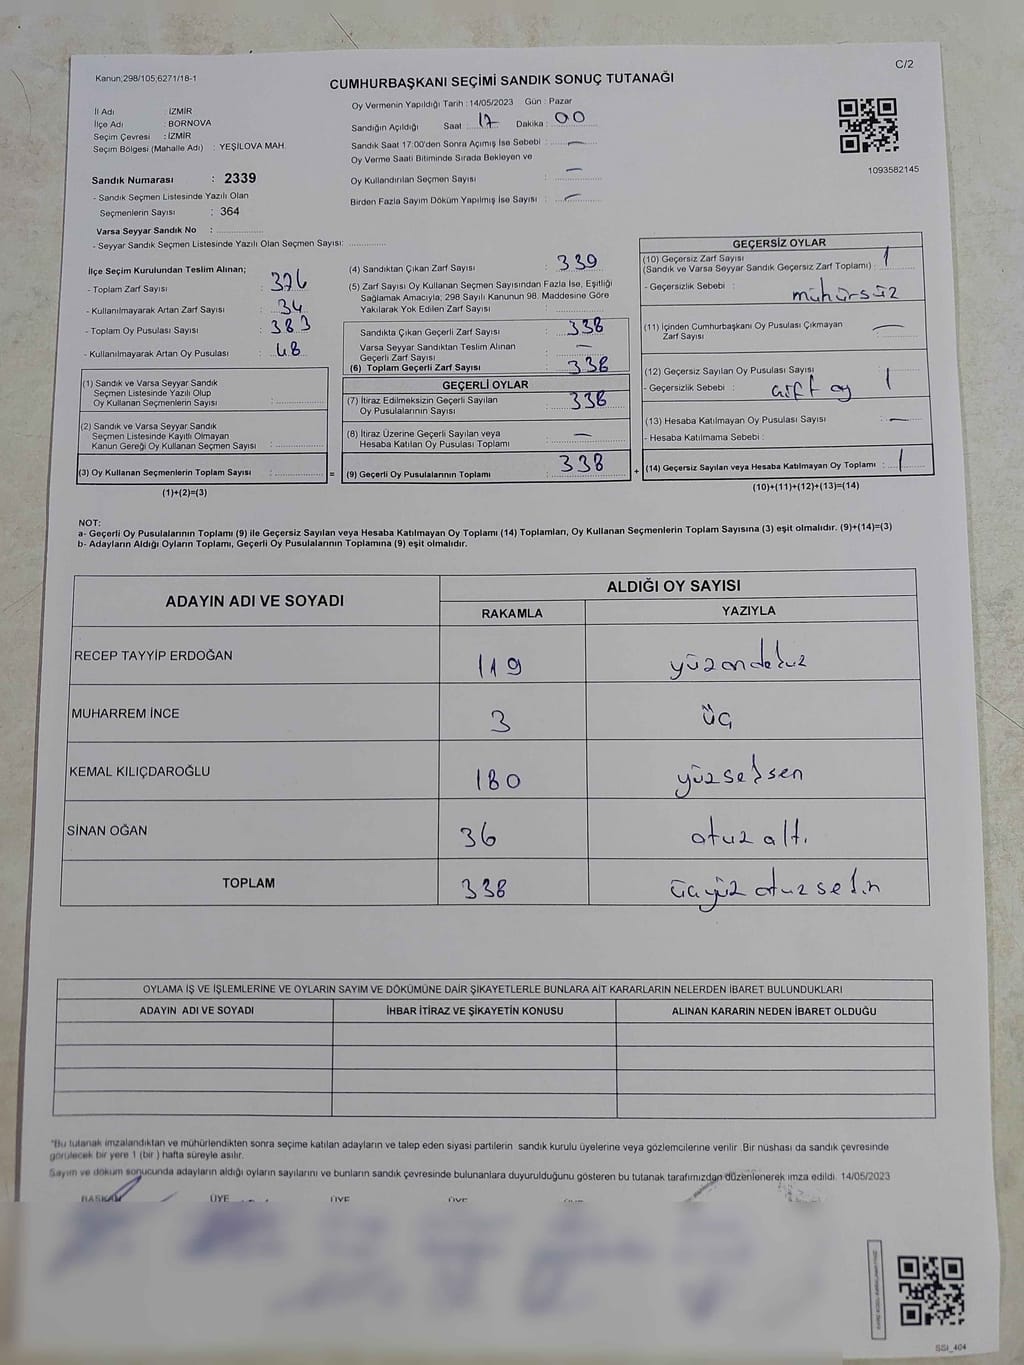 C/2
Kanun;298/105,6271/18-1
CUMHURBAŞKANI SEÇİMİ SANDIK SONUÇ TUTANAĞI
İl Adı : İZMİR
İlçe Adı : BORNOVA
Seçim Çevresi : İZMİR
Seçim Bölgesi (Mahalle Adı) : YEŞİLOVA MAH.
Sandık Numarası : 2339
- Sandık Seçmen Listesinde Yazılı Olan
Seçmenlerin Sayısı : 364
Varsa Seyyar Sandık No :
- Seyyar Sandık Seçmen Listesinde Yazılı Olan Seçmen Sayısı:
Oy Vermenin Yapıldığı Tarih : 14/05/2023 Gün : Pazar
Sandığın Açıldığı Saat : 17 Dakika : 00
Sandık Saat 17.00'den Sonra Açımış İse Sebebi : —
Oy Verme Saati Bitiminde Sırada Bekleyen ve
Oy Kullandırılan Seçmen Sayısı : —
Birden Fazla Sayım Döküm Yapılmış İse Sayısı : —
1093582145
İlçe Seçim Kurulundan Teslim Alınan;
- Toplam Zarf Sayısı : 376
- Kullanılmayarak Artan Zarf Sayısı : 34
- Toplam Oy Pusulası Sayısı : 383
- Kullanılmayarak Artan Oy Pusulası : 48
(1) Sandık ve Varsa Seyyar Sandık
Seçmen Listesinde Yazılı Olup
Oy Kullanan Seçmenlerin Sayısı :
(2) Sandık ve Varsa Seyyar Sandık
Seçmen Listesinde Kayıtlı Olmayan
Kanun Gereği Oy Kullanan Seçmen Sayısı :
(3) Oy Kullanan Seçmenlerin Toplam Sayısı : =
(1)+(2)=(3)
(4) Sandıktan Çıkan Zarf Sayısı : 339
(5) Zarf Sayısı Oy Kullanan Seçmen Sayısından Fazla İse, Eşitliği
Sağlamak Amacıyla; 298 Sayılı Kanunun 98. Maddesine Göre
Yakılarak Yok Edilen Zarf Sayısı :
Sandıkta Çıkan Geçerli Zarf Sayısı : 338
Varsa Seyyar Sandıktan Teslim Alınan
Geçerli Zarf Sayısı : —
(6) Toplam Geçerli Zarf Sayısı : 338
GEÇERLİ OYLAR
(7) İtiraz Edilmeksizin Geçerli Sayılan
Oy Pusulalarının Sayısı : 338
(8) İtiraz Üzerine Geçerli Sayılan veya
Hesaba Katılan Oy Pusulası Toplamı : —
(9) Geçerli Oy Pusulalarının Toplamı : 338 +
GEÇERSİZ OYLAR
(10) Geçersiz Zarf Sayısı
(Sandık ve Varsa Seyyar Sandık Geçersiz Zarf Toplamı) : 1
- Geçersizlik Sebebi : mühürsüz
(11) İçinden Cumhurbaşkanı Oy Pusulası Çıkmayan
Zarf Sayısı : —
(12) Geçersiz Sayılan Oy Pusulası Sayısı : 1
- Geçersizlik Sebebi : çift oy
(13) Hesaba Katılmayan Oy Pusulası Sayısı : —
- Hesaba Katılmama Sebebi :
(14) Geçersiz Sayılan veya Hesaba Katılmayan Oy Toplamı : 1
(10)+(11)+(12)+(13)=(14)
NOT:
a- Geçerli Oy Pusulalarının Toplamı (9) ile Geçersiz Sayılan veya Hesaba Katılmayan Oy Toplamı (14) Toplamları, Oy Kullanan Seçmenlerin Toplam Sayısına (3) eşit olmalıdır. (9)+(14)=(3)
b- Adayların Aldığı Oyların Toplamı, Geçerli Oy Pusulalarının Toplamına (9) eşit olmalıdır.
ADAYIN ADI VE SOYADI ALDIĞI OY SAYISI
RAKAMLA YAZIYLA
RECEP TAYYİP ERDOĞAN 119 yüzondokuz
MUHARREM İNCE 3 üç
KEMAL KILIÇDAROĞLU 180 yüzseksen
SİNAN OĞAN 36 otuz altı
TOPLAM 338 üçyüz otuz sekin
OYLAMA İŞ VE İŞLEMLERİNE VE OYLARIN SAYIM VE DÖKÜMÜNE DAİR ŞİKAYETLERLE BUNLARA AİT KARARLARIN NELERDEN İBARET BULUNDUKLARI
ADAYIN ADI VE SOYADI İHBAR İTİRAZ VE ŞİKAYETİN KONUSU ALINAN KARARIN NEDEN İBARET OLDUĞU
"Bu tutanak imzalandıktan ve mühürlendikten sonra seçime katılan adayların ve talep eden siyasi partilerin sandık kurulu üyelerine veya gözlemcilerine verilir. Bir nüshası da sandık çevresinde
görülecek bir yere 1 (bir) hafta süreyle asılır.
Sayım ve döküm sonucunda adayların aldığı oyların sayılarını ve bunların sandık çevresinde bulunanlara duyurulduğunu gösteren bu tutanak tarafımızdan düzenlenerek imza edildi. 14/05/2023
BAŞKAN ÜYE ÜYE ÜYE
SSI_404